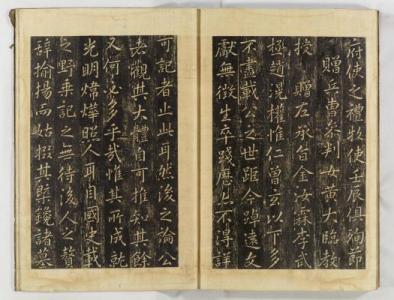 府使之禮牧使壬辰俱殉節
贈兵曹參判女黃大臨敎
授 贈左承旨金汝霖李武
極趙滉權惟仁曾玄以下多
不盡載公之世距今踔遠文
獻無徵生卒踐歷亦不得詳
可記者止此耳然後之論公
者觀其大體自可推知其餘
又何必多乎哉惟其所成就
光明煒燁照人耳目國史載
之野乘記之無待後人之贊
辭揄揚而姑掇其槩鐫諸墓